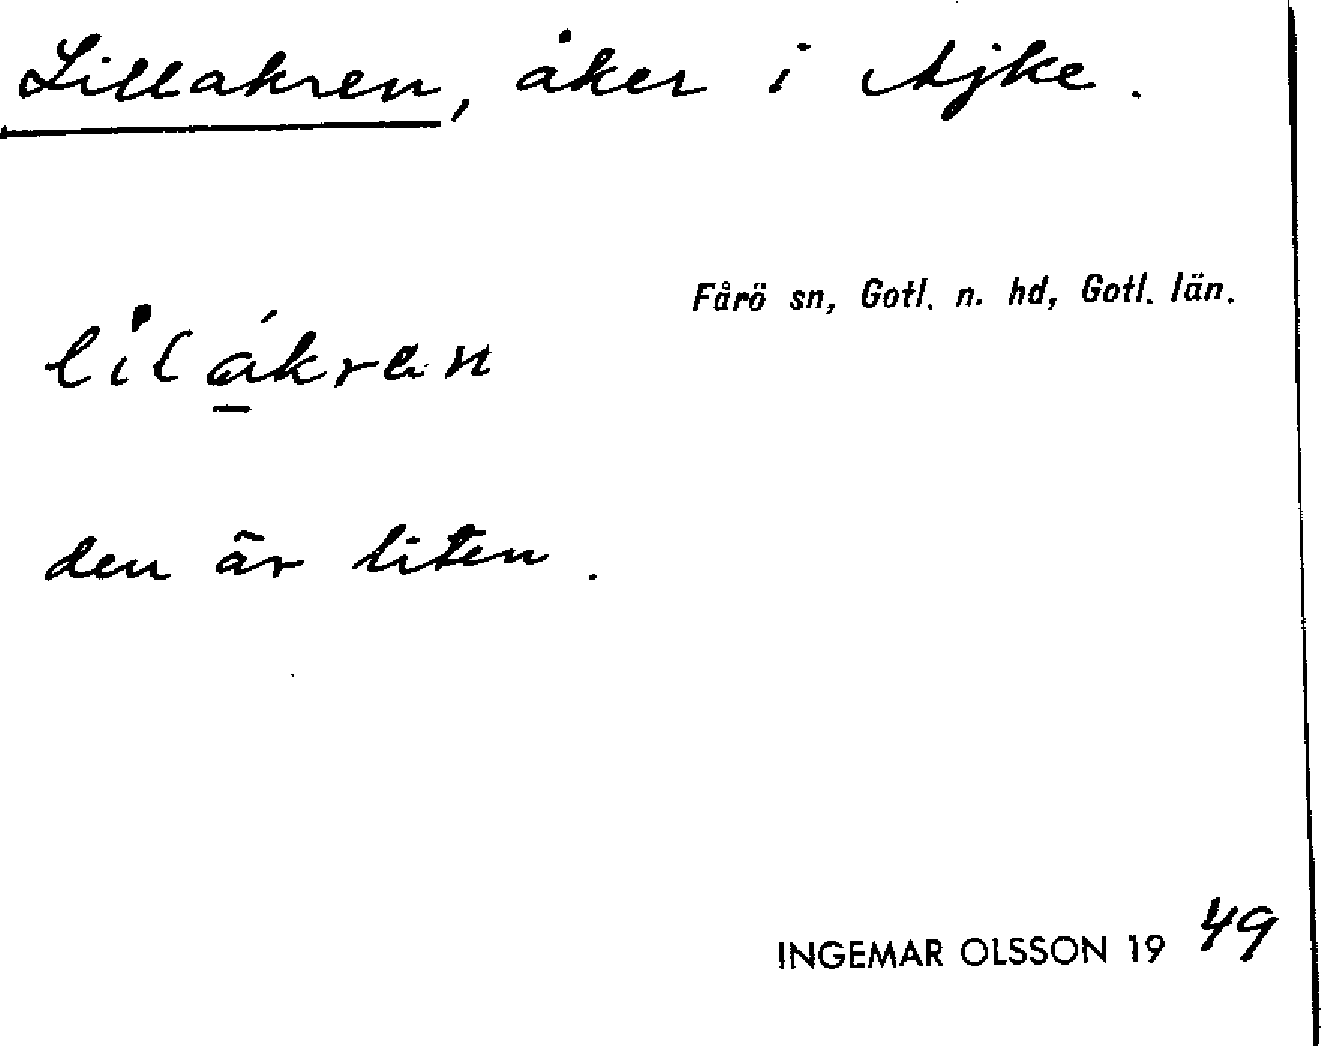 Lillakren, åker i Ajke.
Fårö sn, Gotl. n. hd, Gotl. län.
lilákran
den är liten.
INGEMAR OLSSON 1949